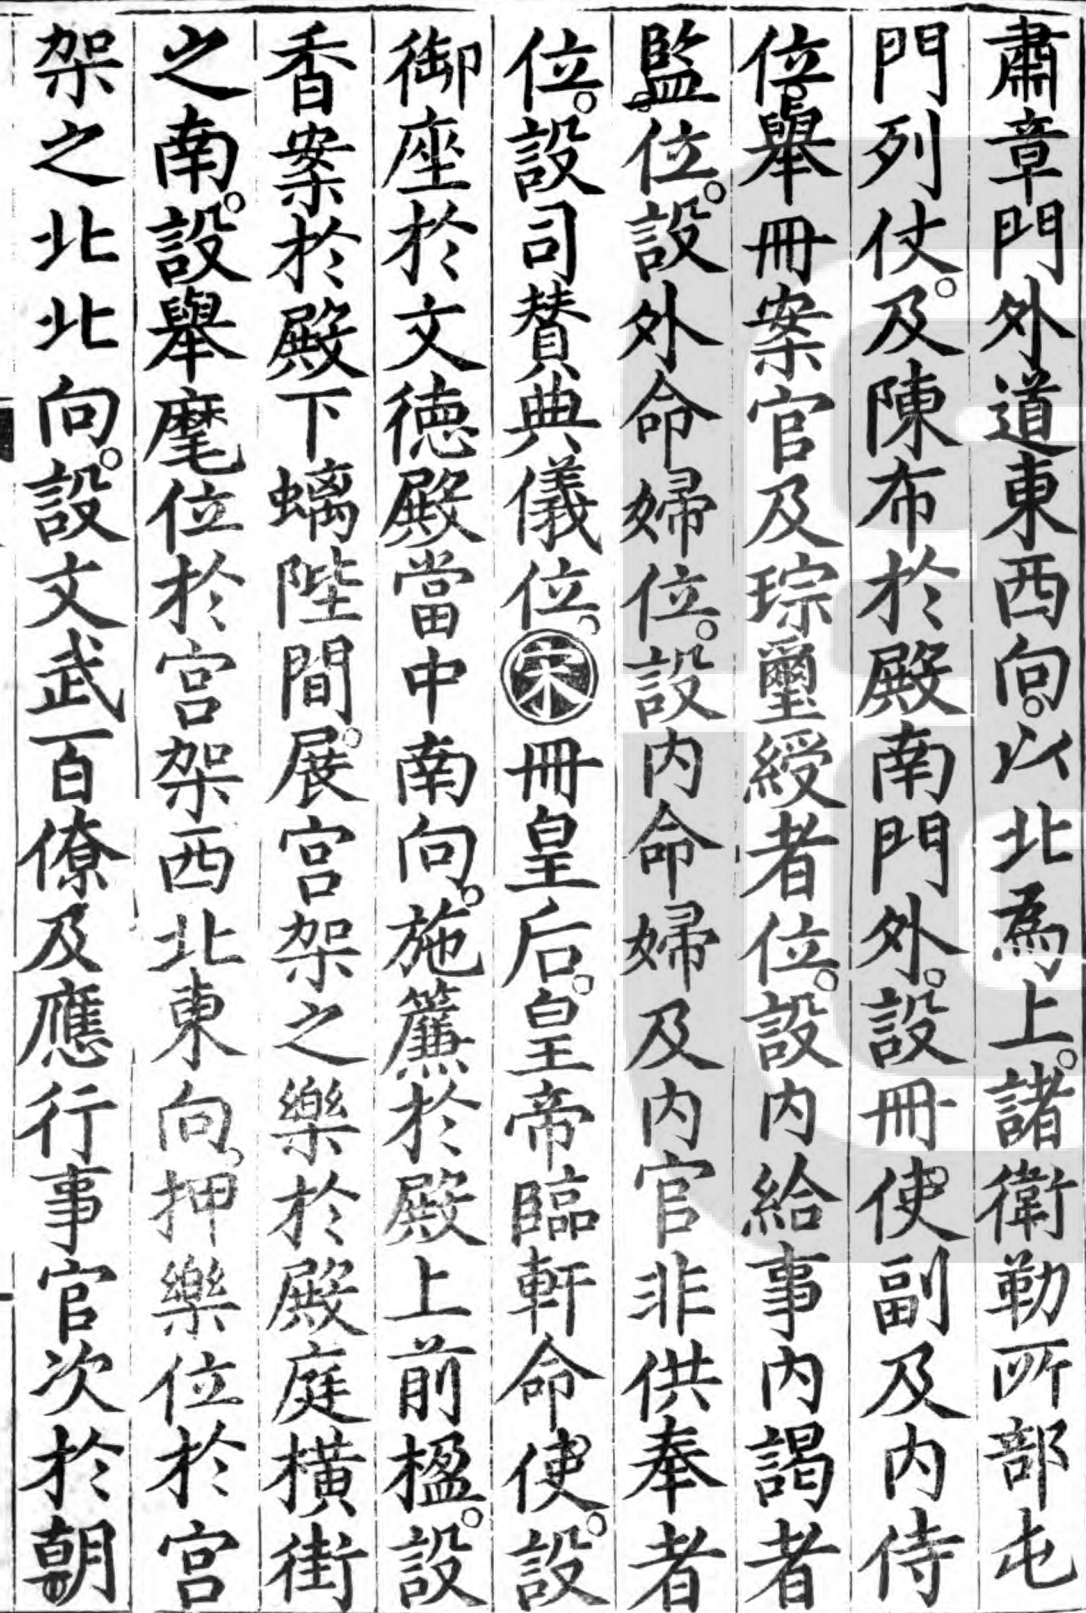 肅章門外道東西向。以北為上。諸衛勒所部屯
門列仗。及陳布於殿南門外。設冊使副及内侍
位。舉冊案官及琮璽綬者位。設内給事内謁者
監位。設外命婦位。設内命婦及内官非供奉者
位。設司贊典儀位。宋冊皇后。皇帝臨軒命使。設
御座於文德殿當中南向。施簾於殿上前楹。設
香案於殿下螭陛間。展宫架之樂於殿庭横街
之南。設舉麾位於宫架西北東向。押樂位於宫
架之北北向。設文武百僚及應行事官次於朝